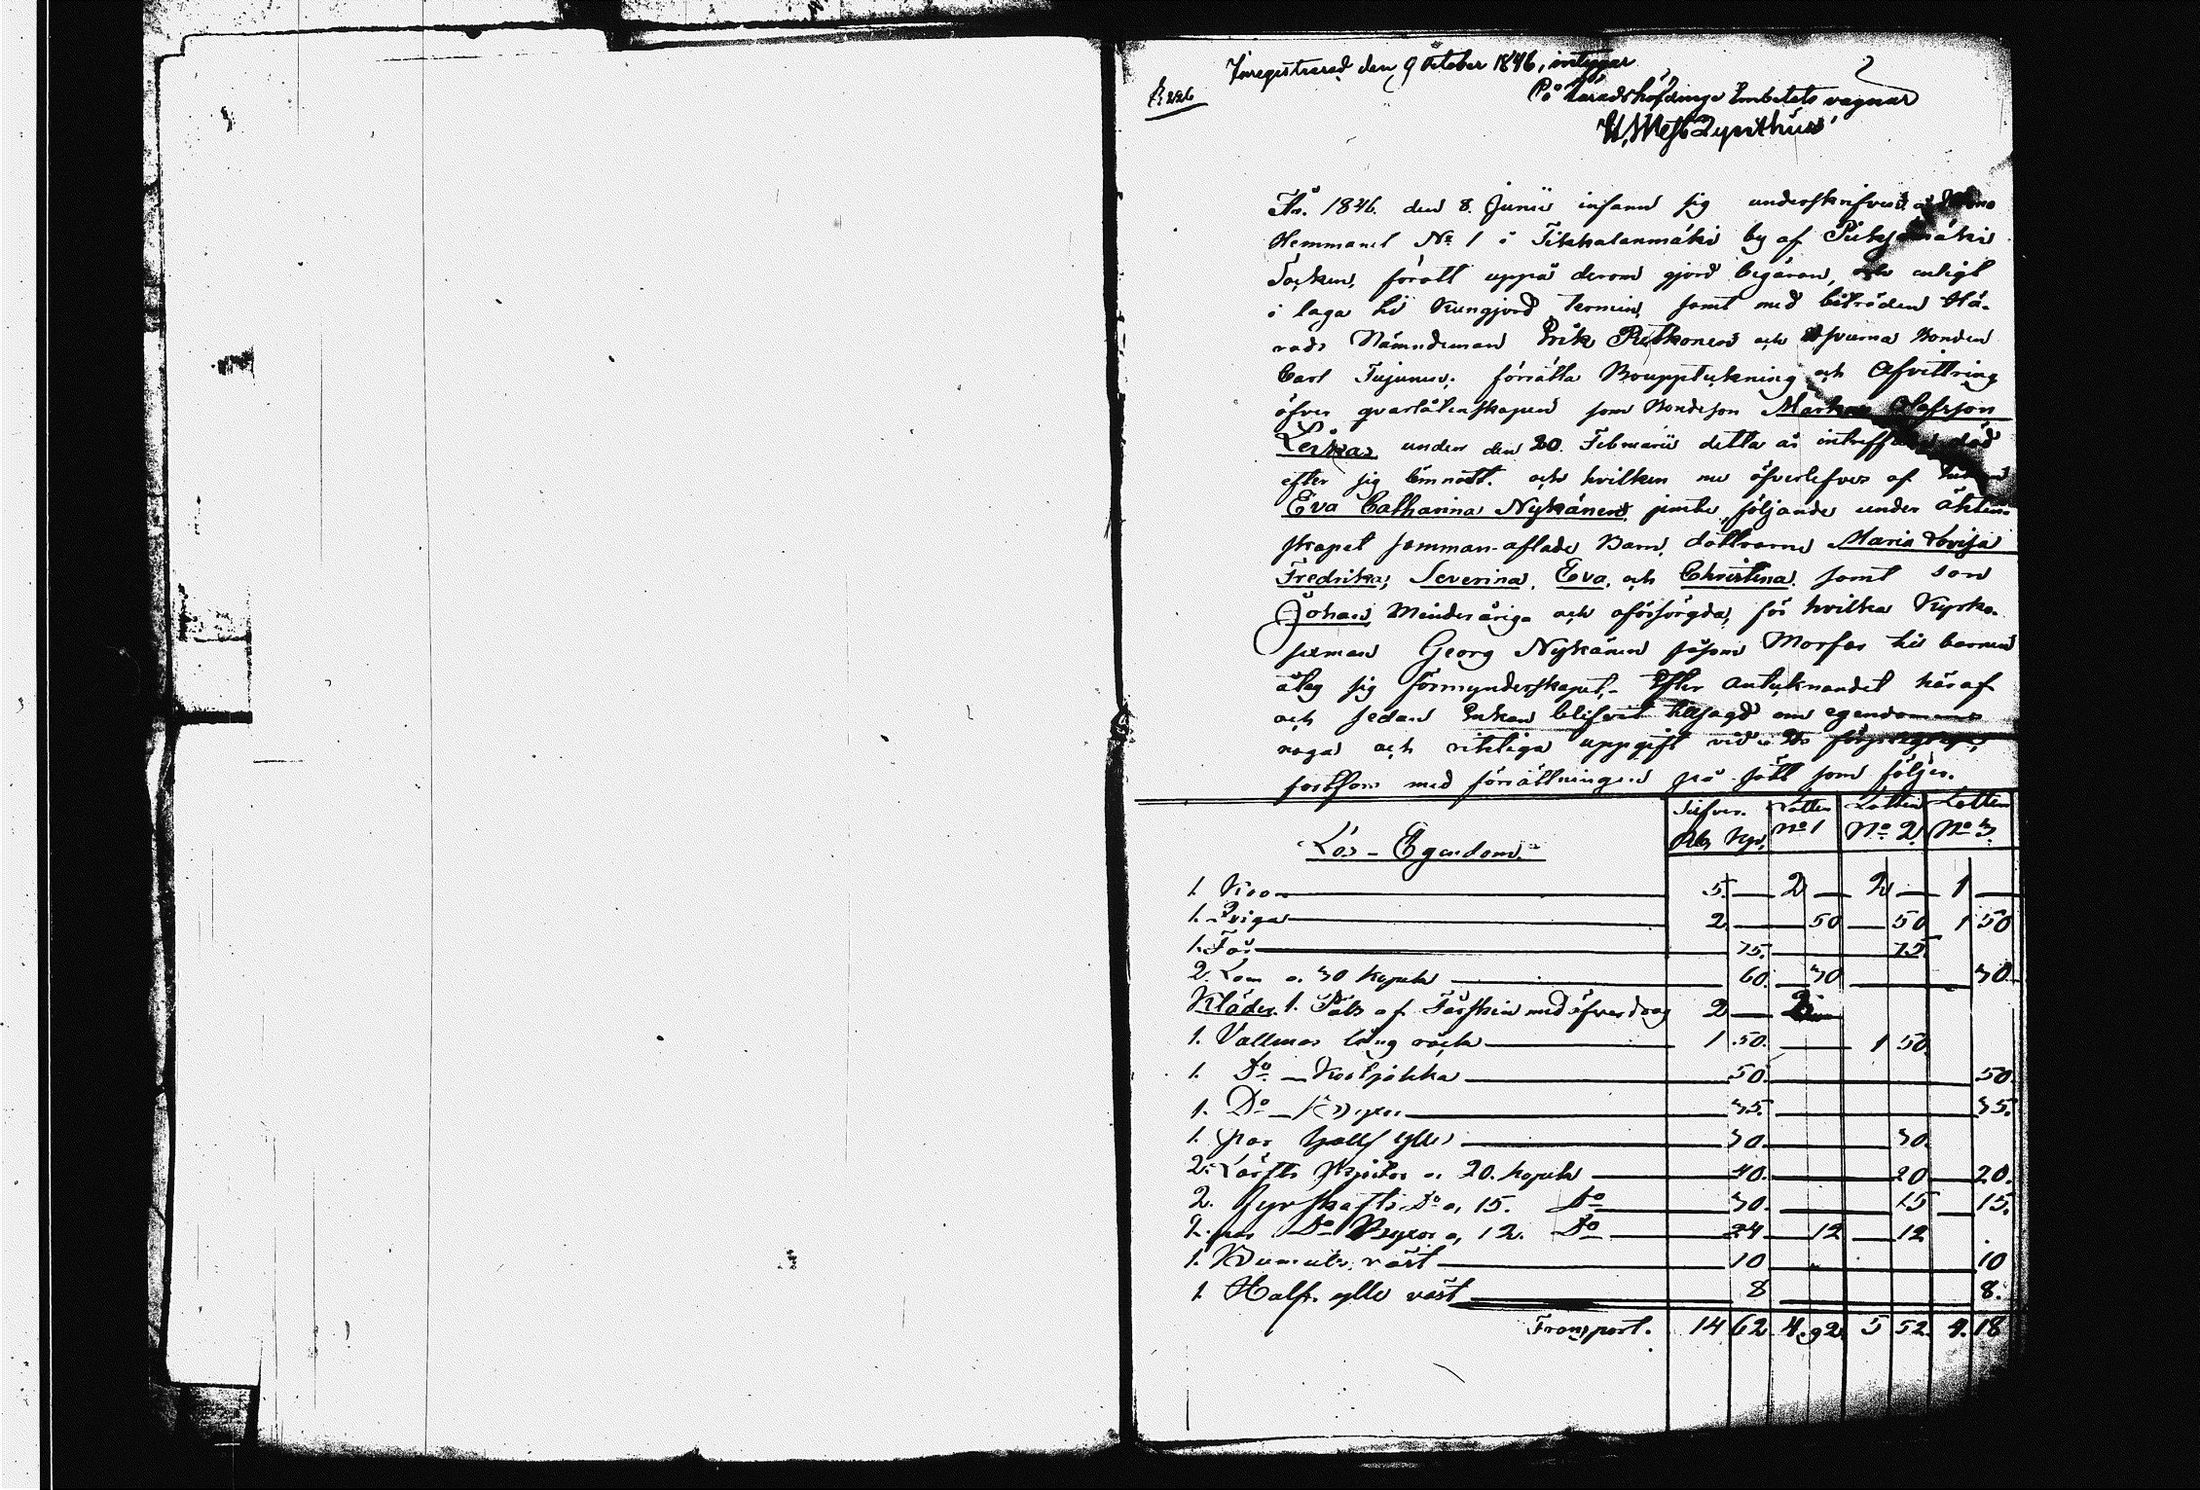 Inregistrerad den 9 October 1846, intygar
På Häradshöfdinge Embetets vägnar
År 1846. den 8. Junii infann sig underskrifven å
Hemmanet No 1 i Tikkalanmäki by af Pieksämäki
Socken, förätt uppå derom gjord begäran, och enligt
i laga tid kungjord termin, samt med biträden Hä-
rads Nämndeman Erik Pietkonen och Bonden
Carl förrätta Bouppteckning och Afvittring
öfver qvarlåtenskapen som Bondeson Markus Olofsson
under den 20. Februarii detta år död
efter sig lämnatt. och hvilken nu öfverlefves af Enkan
Eva Catharina Nykänen jemte följande under äkten-
skapet samman-aflade Barn, döttrarne Maria Lovisa
Fredrika, Severina, Eva, och Christina, samt son
Johan, Minderåriga och oförsörgda, för hvilka Kyrko-
Georg Nykänen såsom Morfar till barnen
åtog sig förmynderskapet,- Efter antecknandet häraf
och sedan Enkan blifvit tillsagd om egendomens
noga och riktiga uppgift vid
fortfors med förrättningen på sätt som följer.
Silfver. Lotten Lotten Lotten
Rb. Kop. No 1 No 2 No 3
Lös-Egendom
1. Ko 5 2 2 1
1. Qviga 2 50 50 1 50
1. Får 75. 75
2. Lam a. 30 kopek 60. 30 30
Kläder. 1. Päls af Fårskin med öfverdrag 2 2
1. Vallmar lång råck 1 50. 1 50
1. Do Kortjakka 50. 50
1. Do 35. 35.
1. par half ylle 30. 30.
2. Lärfts a. 20. kopek 40. 20 20.
2. fyrskafts Do a, 15. Do 30. 15 15.
2. par Do Byxor a, 12. Do 24 12 12
1. Bumuls väst 10 10
1. Half. ylle väst 8 8.
Transport. 14 62 4. 92 5 52. 4. 18